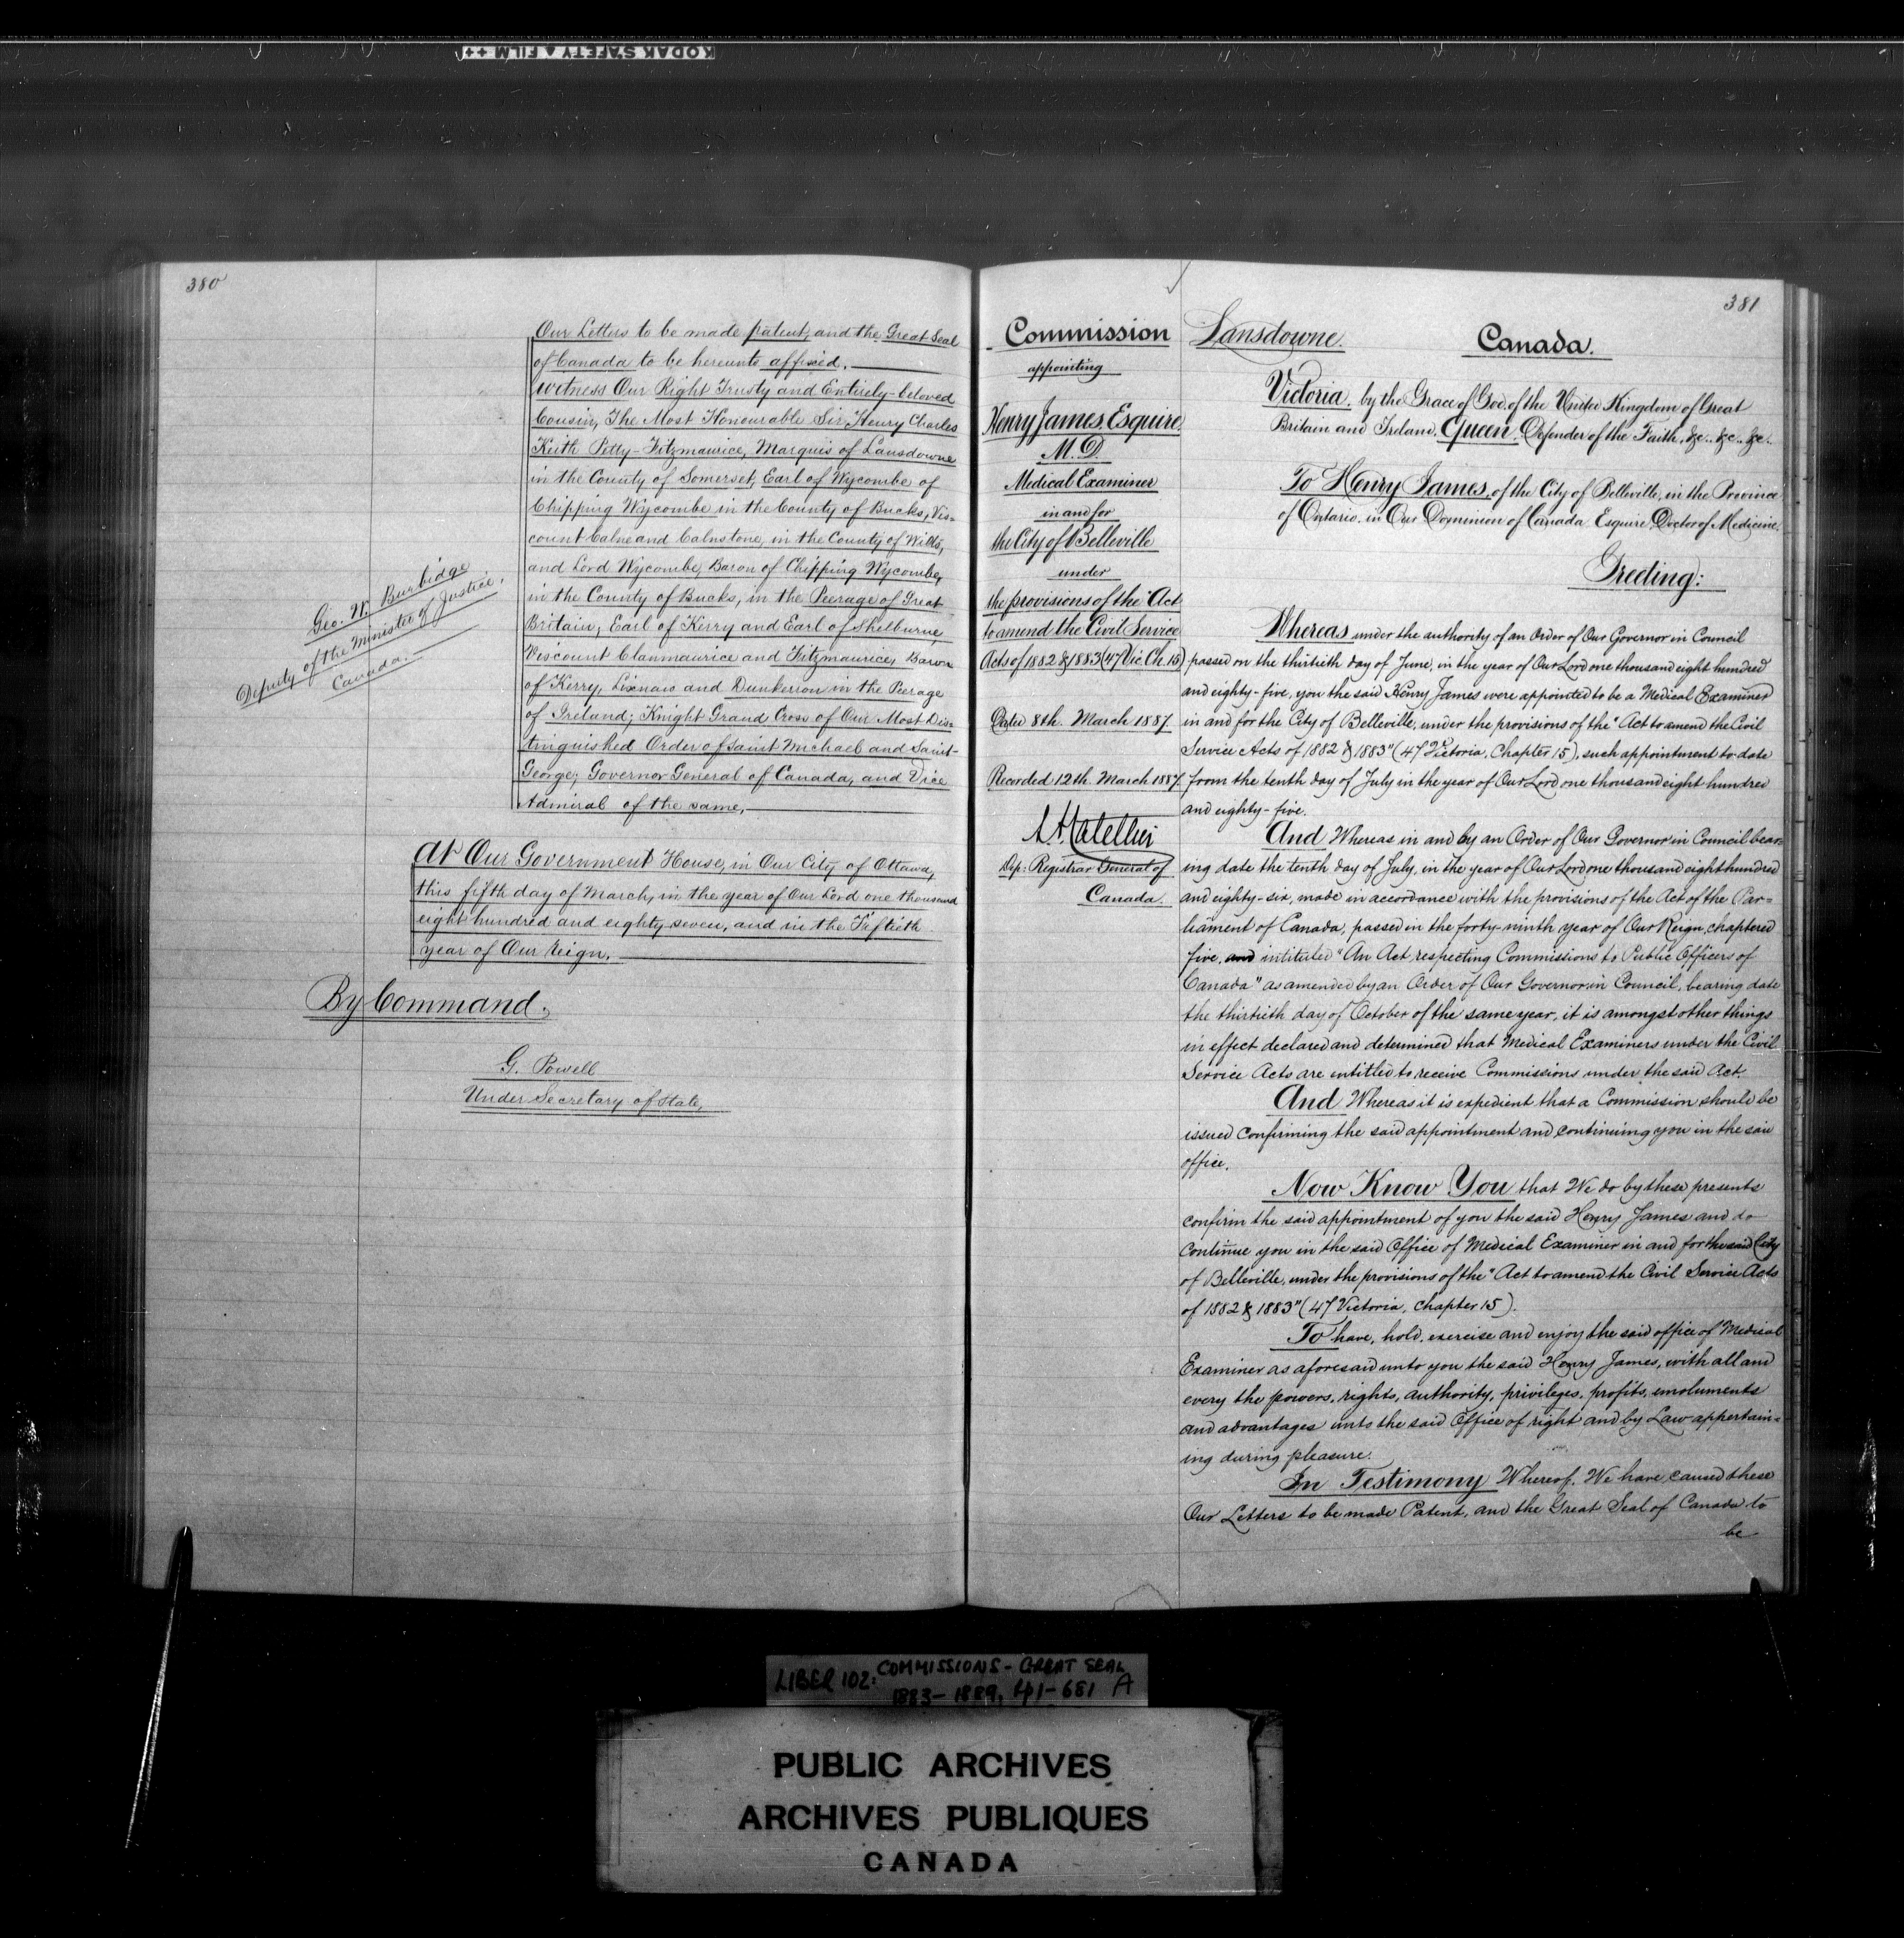 KODAK SAFETY A FILM ++
380
Our Letters to be made patent, and the Great Seal
of Canada to be hereunto affixed.
Witness Our Right Trusty and Entirely-beloved
Cousin, The Most Honourable Sir Henry Charles
Keith Petty-Fitzmaurice, Marquis of Lansdowne
in the County of Somerset, Earl of Wycombe of
Chipping Wycombe in the County of Bucks, Vis=
count Calne and Calnstone, in the County of Wilts,
and Lord Wycombe, Baron of Chipping Wycombe,
in the County of Bucks, in the Peerage of Great
Britain, Earl of Kerry and Earl of Shelburne,
Viscount Clanmaurice and Fitzmaurice, Baron
of Kerry, Lixnaw and Dunkerron in the Peerage
of Ireland; Knight Grand Cross of Our Most Dis=
tinguished Order of Saint Michael and Saint-
George; Governor General of Canada, and Vice
Admiral of the same,
Geo. W. Burbidge
Deputy of the Minister of Justice,
Canada.
At Our Government House, in Our City of Ottawa,
this fifth day of March, in the year of Our Lord one thousand
eight hundred and eighty-seven, and in the Fiftieth
year of Our Reign.
By Command,
G. Powell
Under Secretary of State,
381
Commission
appointing
Henry James, Esquire,
M.D.
Medical Examiner
in and for
the City of Belleville
under
the provisions of the "Act
to amend the Civil Service
Acts of 1882 & 1883 (47 Vic. Ch. 15)
Dated 8th March 1887.
Recorded 12th March 1887.
Dep: Registrar General of
Canada.
Lansdowne.
Canada.
Victoria, by the Grace of God, of the United Kingdom of Great
Britain and Ireland, Queen, Defender of the Faith, &c., &c., &c.
To Henry James, of the City of Belleville, in the Province
of Ontario, in Our Dominion of Canada Esquire, Doctor of Medicine,
Greeting:
Whereas under the authority of an Order of Our Governor in Council
passed on the thirtieth day of June, in the year of Our Lord one thousand eight hundred
and eighty-five, you the said Henry James were appointed to be a Medical Examiner
in and for the City of Belleville, under the provisions of the "Act to amend the Civil
Service Acts of 1882 & 1883" (47 Victoria, Chapter 15), such appointment to date
from the tenth day of July in the year of Our Lord one thousand eight hundred
and eighty-five.
And Whereas in and by an Order of Our Governor in Council bear=
ing date the tenth day of July, in the year of Our Lord one thousand eight hundred
and eighty-six, made in accordance with the provisions of the Act of the Par=
liament of Canada, passed in the forty-ninth year of Our Reign, chaptered
five, and intituled "An Act respecting Commissions to Public Officers of
Canada" as amended by an Order of Our Governor in Council, bearing date
the thirtieth day of October of the same year, it is amongst other things
in effect declared and determined that Medical Examiners under the Civil
Service Acts are entitled to receive Commissions under the said Act.
And Whereas it is expedient that a Commission should be
issued confirming the said appointment and continuing you in the said
office,
Now Know You that We do by these presents
confirm the said appointment of you the said Henry James and do
continue you in the said Office of Medical Examiner in and for the said City
of Belleville, under the provisions of the "Act to amend the Civil Service Acts
of 1882 & 1883" (47 Victoria, Chapter 15).
To have, hold, exercise and enjoy the said office of Medical
Examiner as aforesaid unto you the said Henry James, with all and
every the powers, rights, authority, privileges, profits, emoluments
and advantages unto the said Office of right and by Law appertain=
ing during pleasure.
In Testimony Whereof, We have caused these
Our Letters to be made Patent, and the Great Seal of Canada to
be
LIBER 102: COMMISSIONS - GREAT SEAL
1883-1889, 41-681 A
PUBLIC ARCHIVES
ARCHIVES PUBLIQUES
CANADA